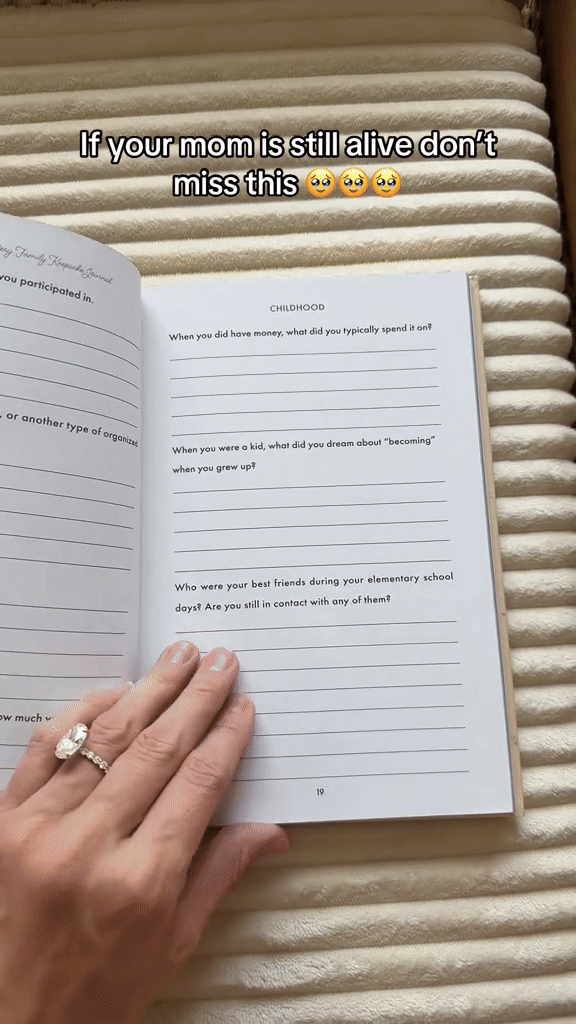 If your mom is still alive don't
miss this 🥹🥹🥹
Family Keepsake Journal
you participated in.
, or another type of organized
much
CHILDHOOD
When you did have money, what did you typically spend it on?
When you were a kid, what did you dream about “becoming”
when you grew up?
Who were your best friends during your elementary school
days? Are you still in contact with any of them?
19